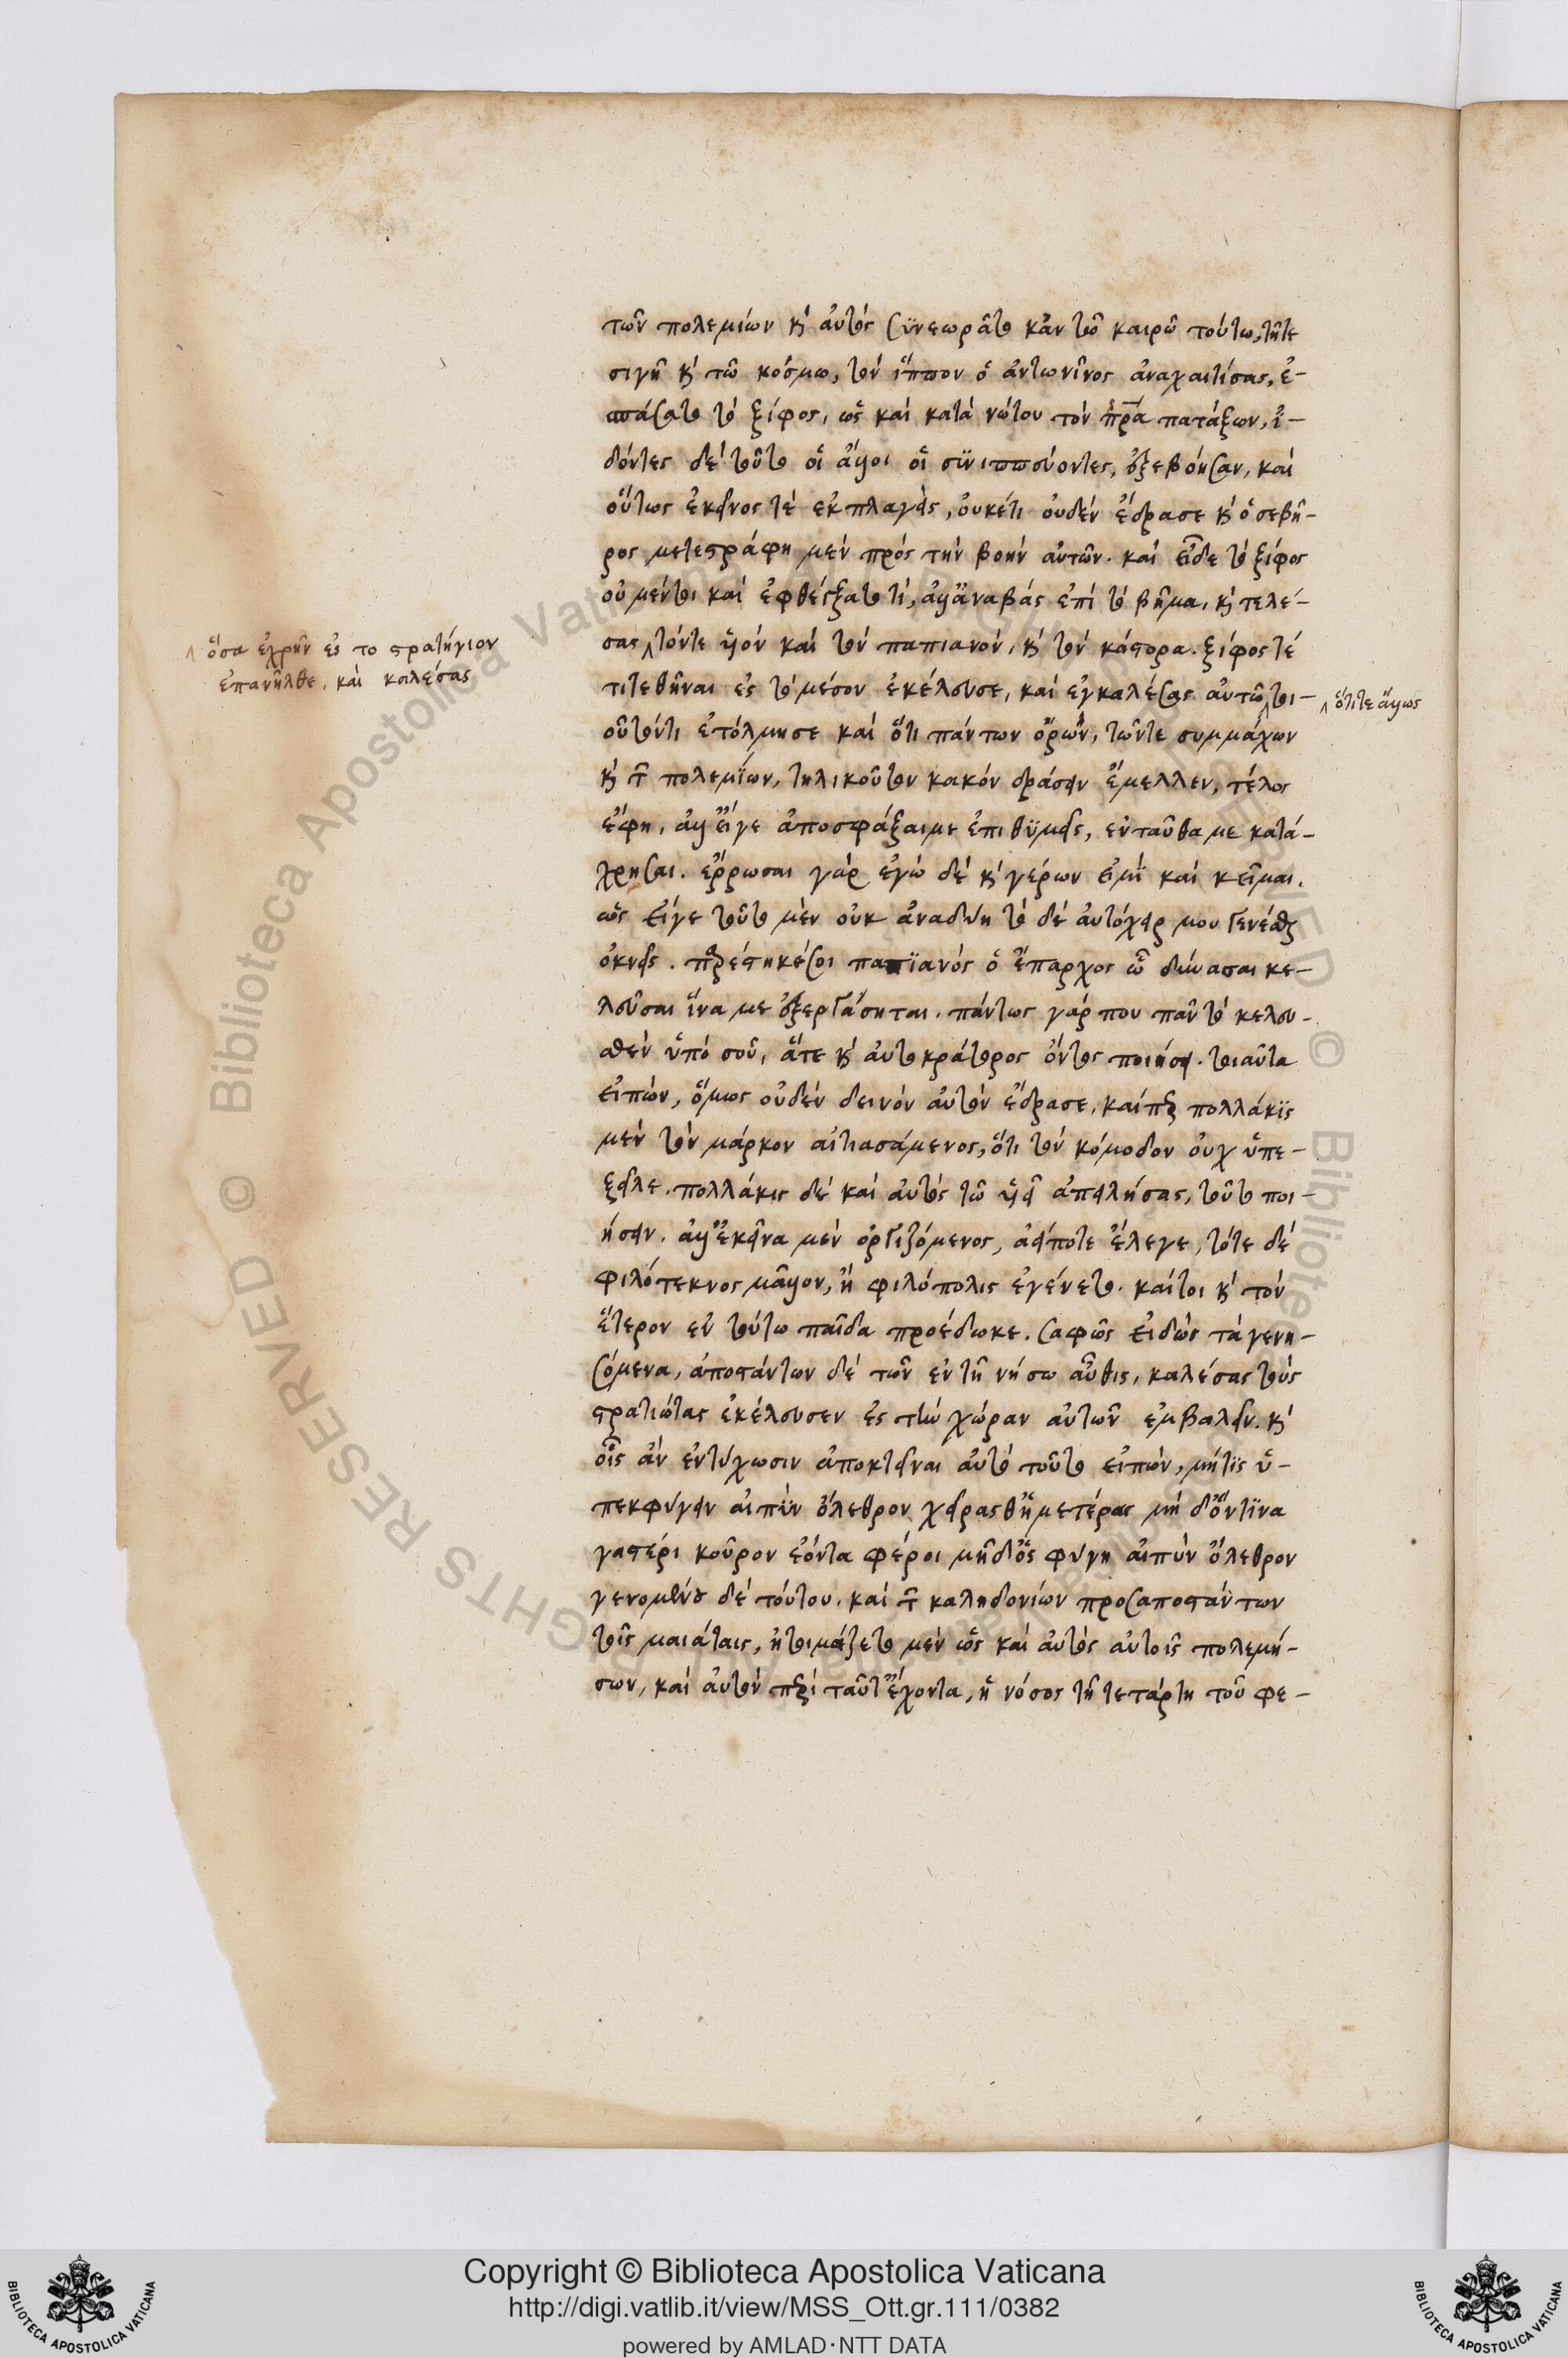 τῶν πολεμίων κ αὐτὸς συνεωρᾶτο κἀν τῶ καιρῶ τούτω, τῆτε
σιγῆ κ τῶ κόσμω, τὸν ἵππον ὁ ἀντωνῖνος ἀναχαιτίσας, ἐ-
σπάσατο τὸ ξίφος, ὡς καὶ κατὰ νώτου τὸν πρα πατάξων, ἰ-
δόντες δὲ τοῦτο οἱ ἄλλοι οἱ συνιππεύοντες, ἐξεβόησαν, καὶ
οὕτως ἐκεῖνος τὲ ἐκπλαγεὶς, ὀυκέτι ὀυδὲν ἔδρασε κ ὁ σεβῆ-
ρος μετεστράφη μὲν πρὸς τὴν βοὴν αὐτῶν. καὶ εἶδε τὸ ξίφος
οὐ μέντοι καὶ ἐφθέγξατο τὶ, ἀλλ' ἀναβὰς ἐπὶ τὸ βῆμα, κ τελέ-
σας τόντε υἱὸν καὶ τὸν παπιανὸν, κ τὸν κάστορα. ξίφος τέ
ὅσα ἐχρῆν ἐς το στρατήγιον
ἐπανῆλθε, καὶ καλέσας
τι τεθῆναι ἐς τὸ μέσον ἐκέλευσε, καὶ ἐγκαλέσας αὐτῶ τοι-
ὅτι τε ἄλλως
οῦτόντι ἐτόλμησε καὶ ὅτι πάντων ὁρών, τῶντε συμμάχων
κ τ πολεμίων, τηλικοῦτον κακὸν δράσειν ἔμελλεν, τέλος
ἔφη, ἀλλ' εἴγε ἀποσφάξαιμε ἐπιθυμεῖς, ἐνταῦθα με κατά-
χρησαι. ἔρρωσαι γάρ ἐγὼ δὲ κ γέρων εἰμὶ καὶ κεῖμαι.
ὡς εἴγε τοῦτο μὲν οὐκ ἀναδύη τὸ δὲ ἀυτόχειρ μου γενέσθαι
ὀκνεῖς. παρέστηκέσοι παπϊανὸς ὁ ἔπαρχος ὧ δύνασαι κε-
λεῦσαι ἵνα με ἐξεργάσηται. πάντως γάρ που πᾶν τὸ κελευ-
σθὲν ὑπὸ σοῦ, ἅτε κ ἀυτοκράτορος ὄντος ποιήσει. τοιαῦτα
εἰπὼν, ὅμως οὐδὲν δεινὸν αὐτὸν ἔδρασε, καίπερ πολλάκις
μὲν τὸν μάρκον αἰτιασάμενος, ὅτι τὸν κόμοδον οὐχ ὑπε-
ξεῖλε. πολλάκις δὲ καὶ ἀυτὸς τῶ υἱεῖ ἀπειλήσας, τοῦτο ποι-
ήσειν. ἀλλ' ἐκεῖνα μὲν ὀργιζόμενος, ἀείποτε ἔλεγε, τότε δὲ
φιλότεκνος μᾶλλον, ἢ φιλόπολις ἐγένετο. καίτοι κ τὸν
ἕτερον ἐν τούτω παῖδα προέδωκε. σαφῶς εἰδὼς τὰ γενη-
σόμενα, ἀποστάντων δὲ τῶν ἐν τῆ νήσω αὖθις, καλέσας τοὺς
στρατιώτας ἐκέλευσεν ἐς τὴν χώραν αὐτῶν ἐμβαλεῖν. κ
οἷς ἂν ἐντύχωσιν ἀποκτεῖναι αὐτὸ τοῦτο εἰπὼν, μήτις ὑ-
πεκφύγειν αἰπὺν ὄλεθρον χεῖρας θ' ἡμετέρας μὴ δ' ὅντινα
γαστέρι κοῦρον ἐόντα φέροι μηδ' ὃς φύγη αἰπὺν ὄλεθρον
γενομένου δὲ τούτου. καὶ τ καληδονίων προσαποστάντων
τοῖς μαιάταις, ἡτοιμάζετο μὲν ὡς καὶ ἀυτὸς αὐτοῖς πολεμή-
σων, καὶ ἀυτὸν περὶ ταῦτ' ἔχοντα, ἡ νόσος τῆ τετάρτη τοῦ φε-
Copyright © Biblioteca Apostolica Vaticana
http://digi.vatlib.it/view/MSS_Ott.gr.111/0382
powered by AMLAD·NTT DATA